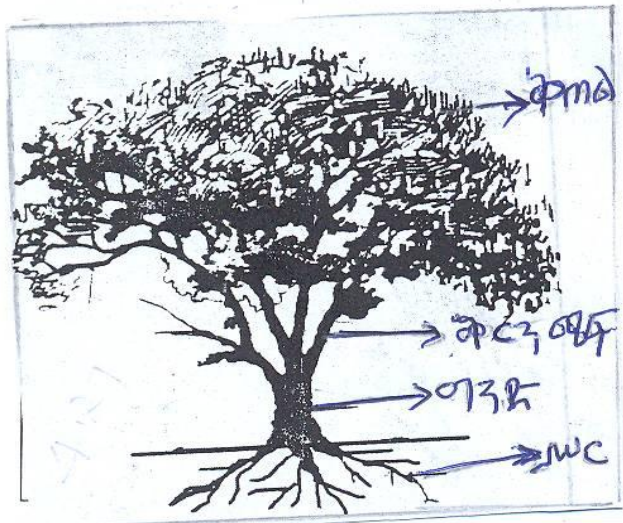 ቅጠል
ቅርንጫፍ
ግንድ
ሥር